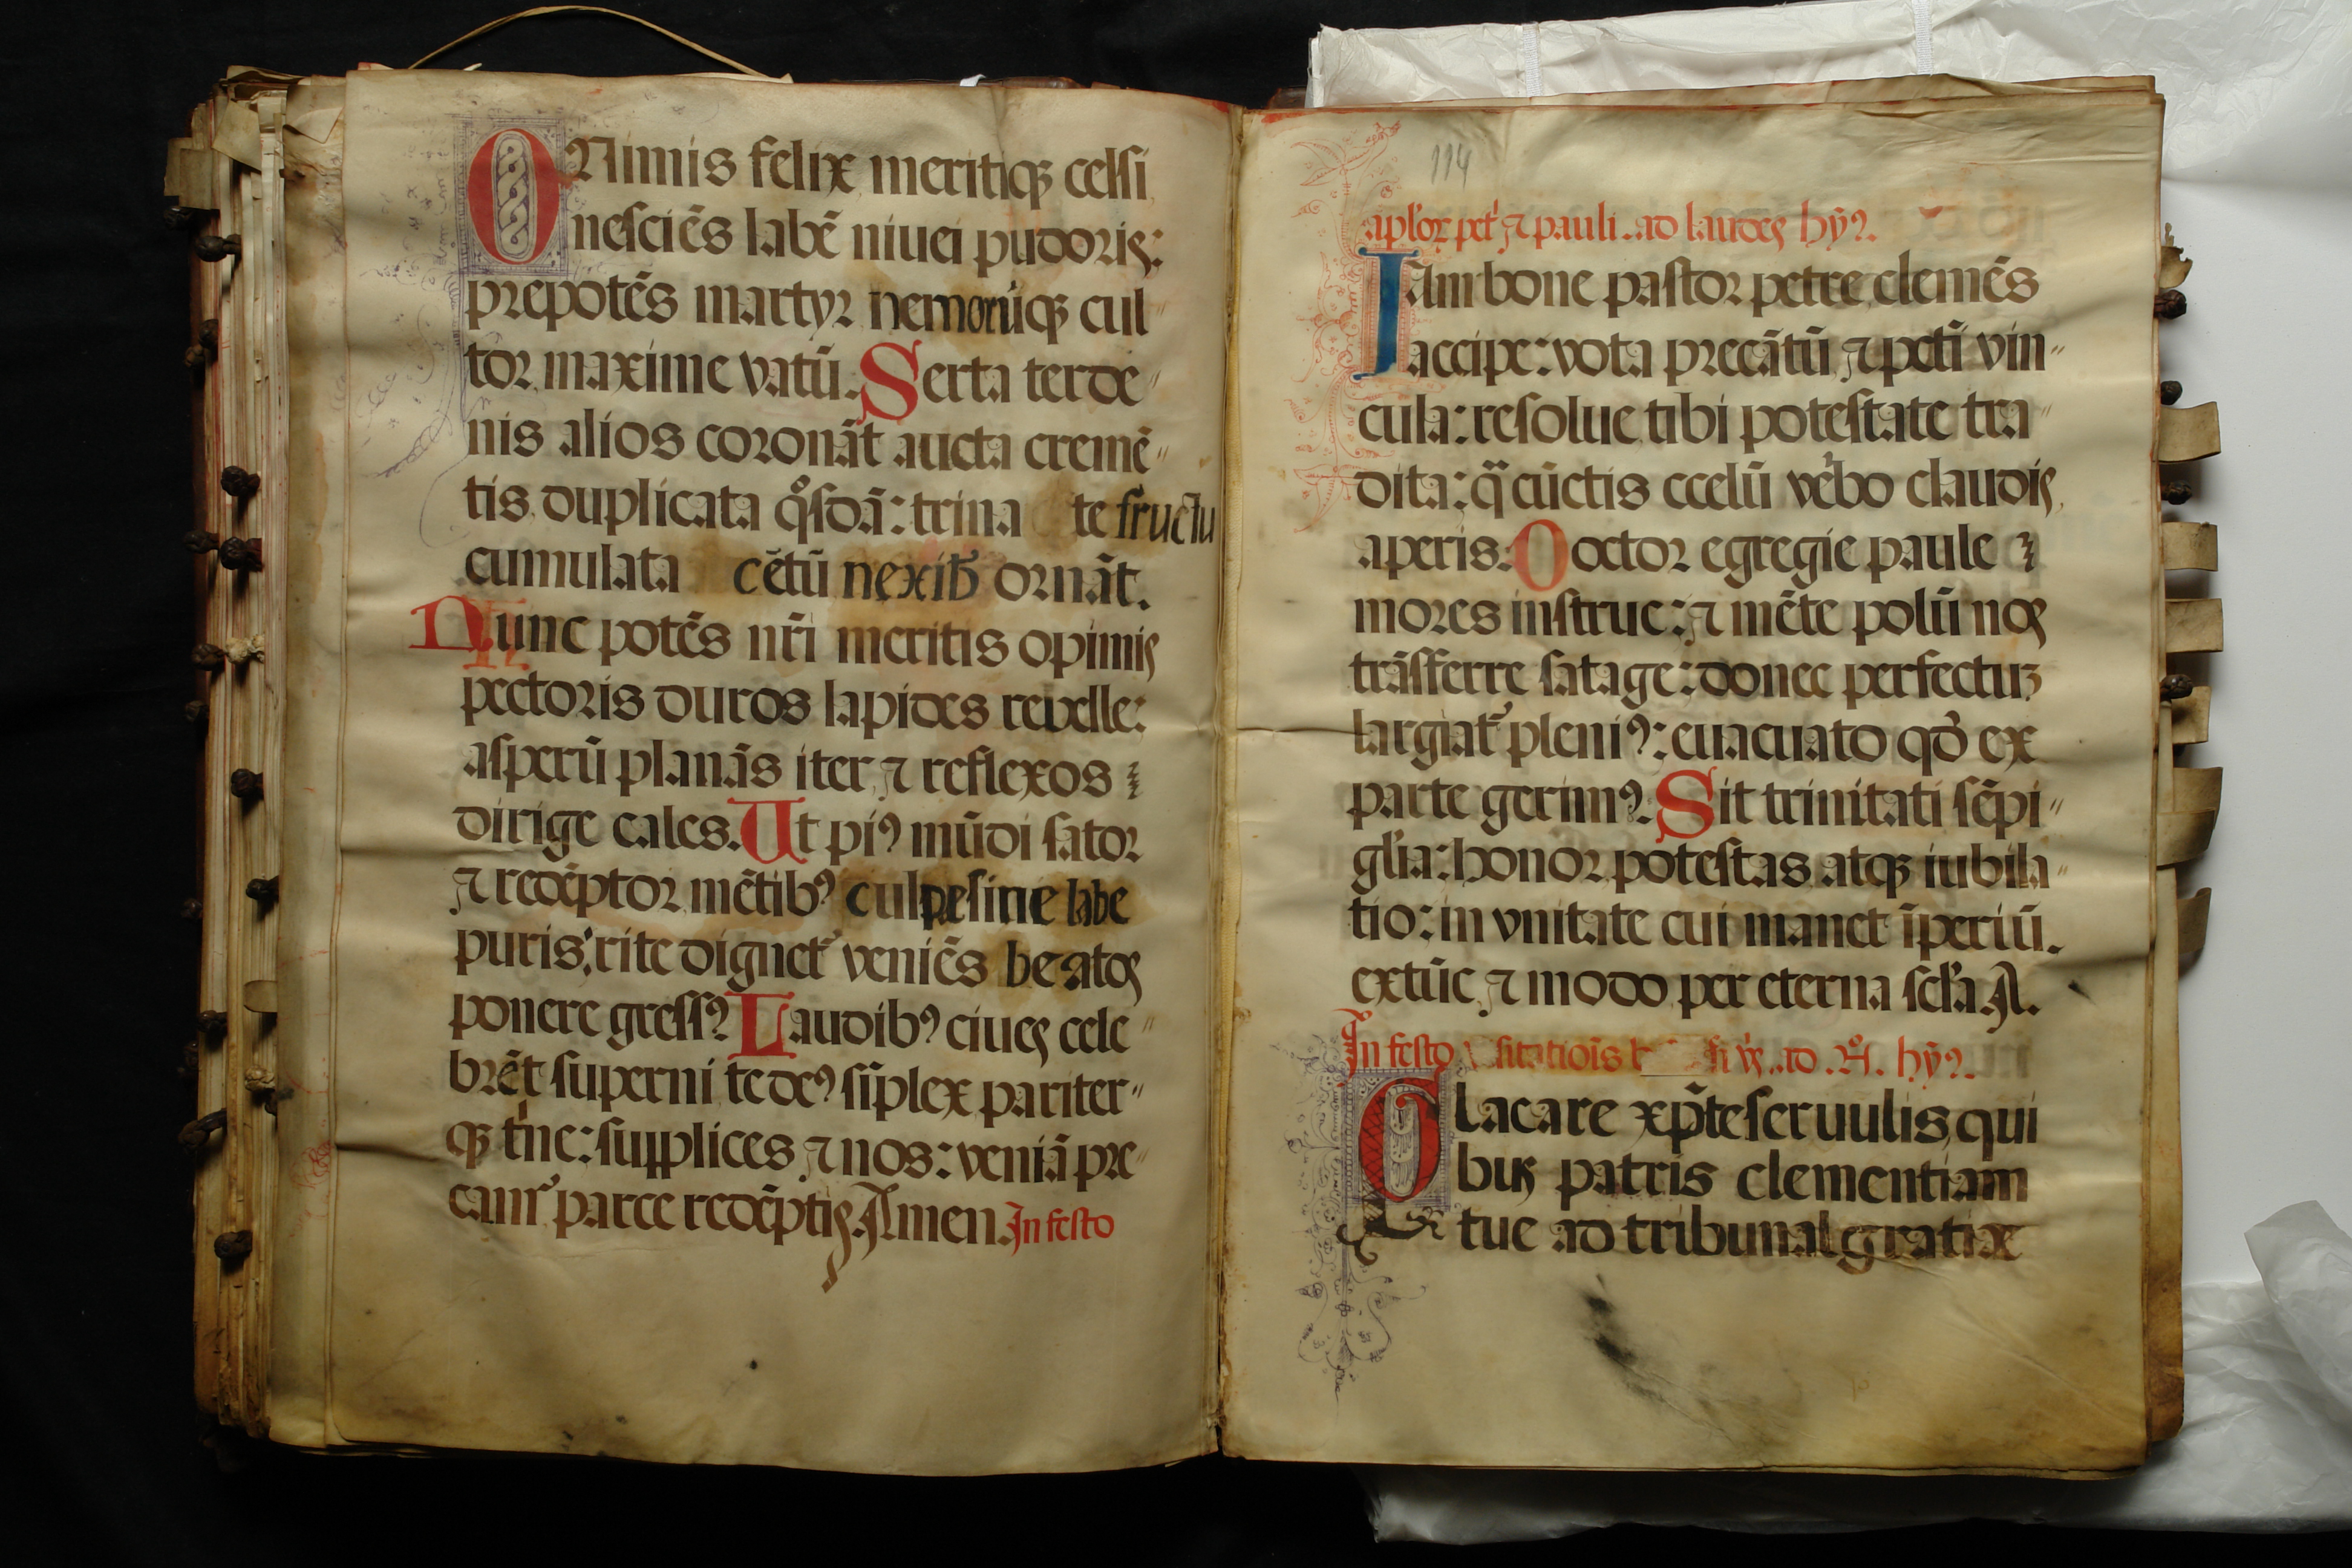 O Nimis felix meritiqꝫ celsi
nesciēs labē niuei pudoris:
prepotēs martyr nemorūqꝫ cul〃
tor maxime vatū. Serta terde〃
nis alios coronāt aucta cremē〃
tis duplicata qͦsdā: trina te fructu
cumulata cētū nexibꝫ ornāt.
Nunc potēs nr̄i meritis opimis
pectoris duros lapides revelle:
asperū planās iter ⁊ reflexos
dirige calles. Ut piꝰ mūdi sator
⁊ redēptor mētibꝰ culpe sine labe
puris: rite dignet᷑ veniēs beatos
ponere gressꝰ Laudibꝰ ciues cele〃
brēt superni te deꝰ sīplex pariter〃
qꝫ trine: supplices ⁊ nos: veniā pre〃
camr᷑ parce redēptis. Amen. In festo
114
apl'oꝝ pet' ⁊ pauli. ad laudes hȳꝰ.
IAm bone pastor petre clemēs
accipe: vota precātū ⁊ peti vin〃
cula: resolue tibi potestate tra〃
dita: q̄ cūctis celū v'bo claudis
aperis. Doctor egregie paule
mores instrue: ⁊ mēte polū nos
trāsferre satage: donec perfectuꝫ
largiat᷑ pleniꝰ: euacuato qd' ex
parte gerimꝰ. Sit trinitati sēpi〃
gl'ia: honor potestas atqꝫ iubila〃
tio: in vnitate cui manet īperiū.
ex tūc ⁊ modo per eterna scl'a. A.
In festo ad hȳꝰ.
lacare xp̄e seruulis qui
bus patris clementiam
tue ad tribunal gratiæ